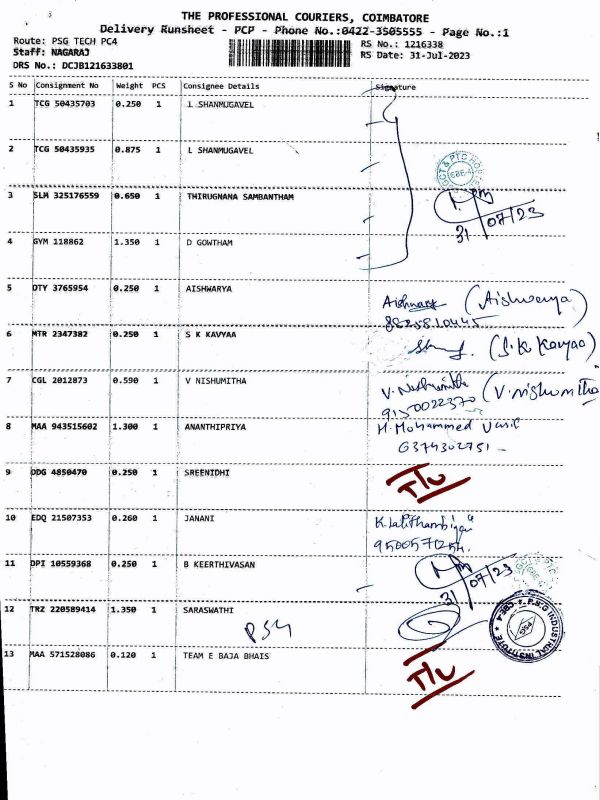 THE PROFESSIONAL COURIERS, COIMBATORE
Delivery Runsheet - PCP - Phone No.:0422-3505555 - Page No.:1
Route: PSG TECH PC4
RS No.: 1216338
Staff: NAGARAJ
RS Date: 31-Jul-2023
DRS No.: DCJB121633801
S No Consignment No Weight PCS Consignee Details Signature
1 TCG 50435703 0.250 1 L SHANMUGAVEL
2 TCG 50435935 0.875 1 L SHANMUGAVEL
3 SLM 325176559 0.650 1 THIRUGNANA SAMBANTHAM
31/07/23
4 GYM 118862 1.350 1 D GOWTHAM
5 OTY 3765954 0.250 1 AISHWARYA
(Aishwarya)
6 MTR 2347382 0.250 1 S K KAVYAA
(S.K Kavyaa)
7 CGL 2012873 0.590 1 V NISHUMITHA
V. Nishumitha (V. nishumitha
9150022370
8 MAA 943515602 1.300 1 ANANTHIPRIYA
H. Mohammed
6374302751
9 DDG 4850470 0.250 1 SREENIDHI
T/U
10 EDQ 21507353 0.260 1 JANANI
K. Lalithambigai
9500571254
11 DPI 10559368 0.250 1 B KEERTHIVASAN
31/07/23
12 TRZ 220589414 1.350 1 SARASWATHI
PSG
★ P.S.G INDUSTRIAL INSTITUTE ★ CBE-4
13 MAA 571528086 0.120 1 TEAM E BAJA BHAIS
T/U